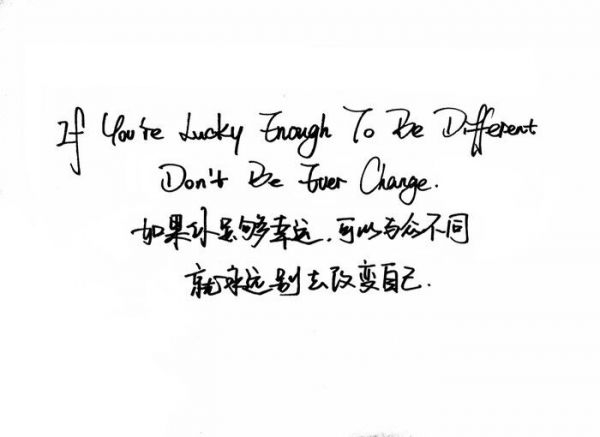 If You're Lucky Enough To Be Different
Don't Be Ever Change.
如果你足够幸运,可以与众不同
就永远别去改变自己.